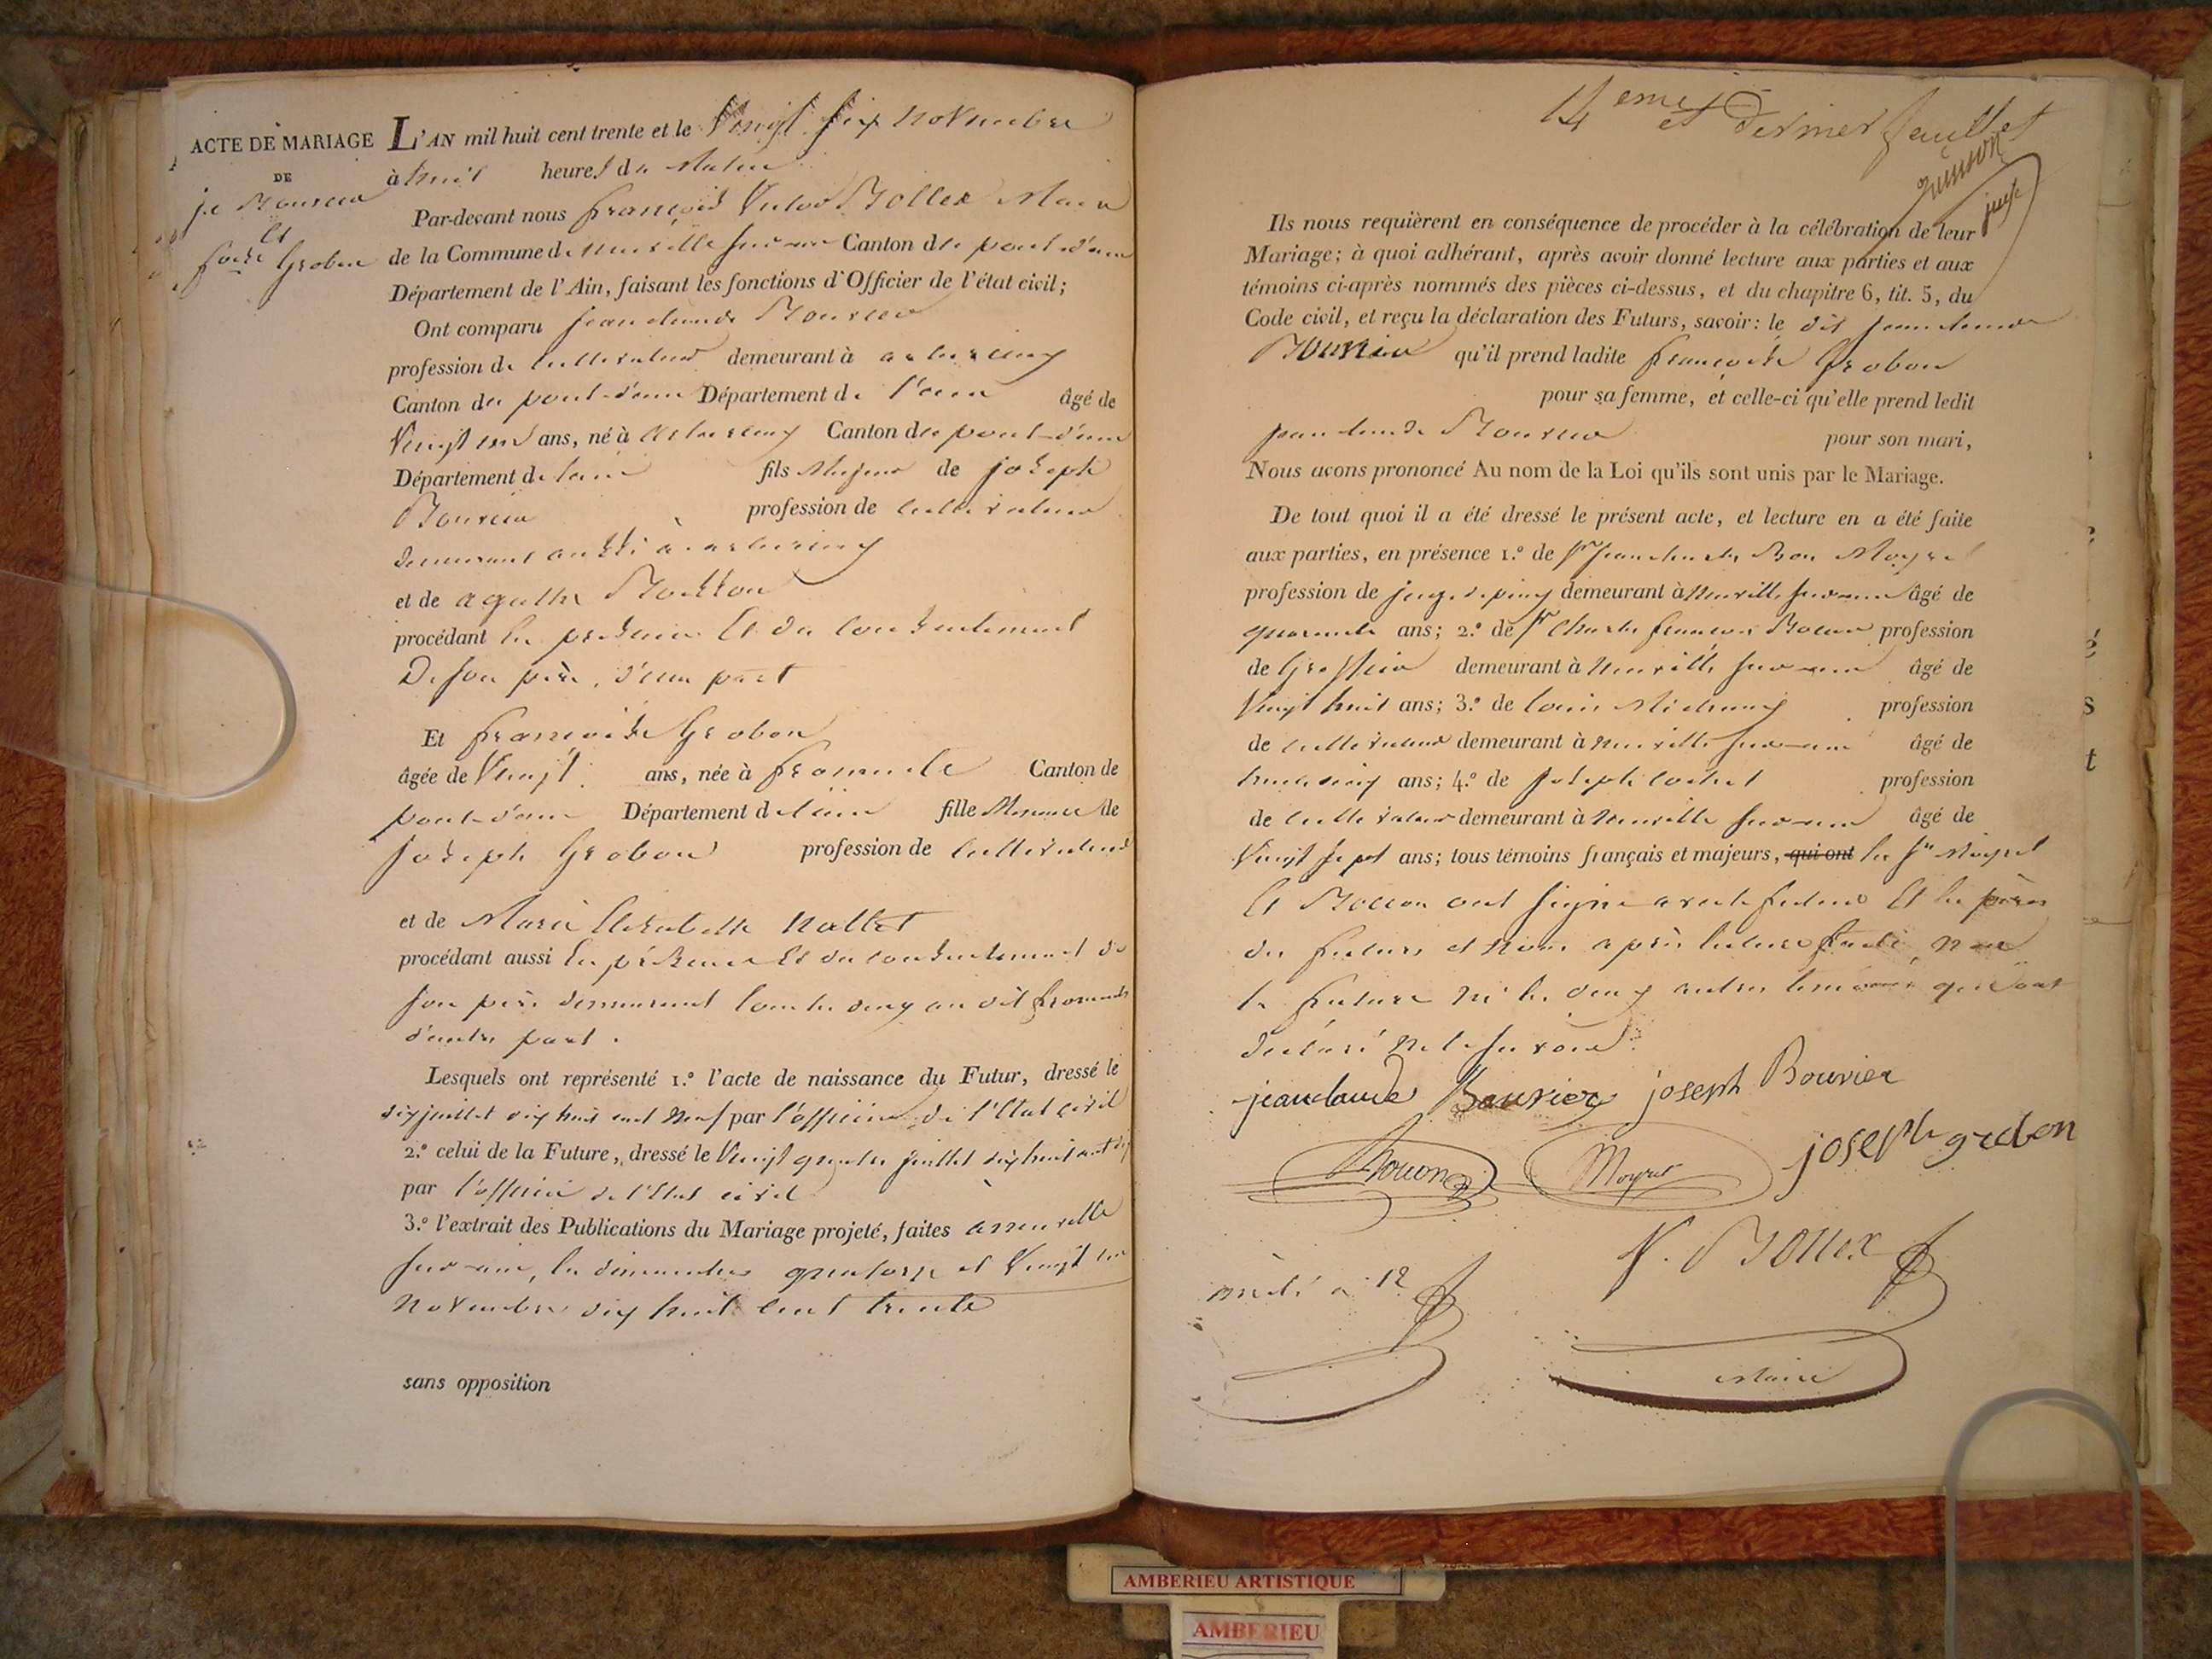 ACTE DE MARIAGE
DE
jc Bouvier
et
foise Grobon
L'AN mil huit cent trente et le Vingt six novembre
à huit heures du Matin
Par-devant nous françois Victor Bollex Maire
de la Commune de neuville sur ain Canton de pont-d'ain
Département de l'Ain, faisant les fonctions d'Officier de l'état civil;
Ont comparu jean claude Bouvier
profession de cultivateur demeurant à
Canton de pont-d'ain Département de l'ain âgé de
Vingt un ans, né à Canton de pont-d'ain
Département de l'ain fils Majeur de joseph
Bouvier profession de cultivateur
demeurant aussi à
et de agathe
procédant en présence et du consentement
De son père, d'une part
Et françoise Grobon
âgée de Vingt ans, née à fromente Canton de
pont-d'ain Département de l'ain fille Mineure de
joseph Grobon profession de cultivateur
et de Marie Elisabeth
procédant aussi en présence et du consentement de
son père demeurant tous les deux au dit fromente
d'autre part.
Lesquels ont représenté 1.º l'acte de naissance du Futur, dressé le
dix juillet dix huit cent neuf par l'officier de l'état civil
2.º celui de la Future, dressé le Vingt quatre juillet dix huit cent dix
par l'officier de l'état civil
3.º l'extrait des Publications du Mariage projeté, faites à neuville
sur-ain, les dimanches quatorze et Vingt un
novembre dix huit cent trente
sans opposition
14 eme et dernier feuillet
juge
Ils nous requièrent en conséquence de procéder à la célébration de leur
Mariage; à quoi adhérant, après avoir donné lecture aux parties et aux
témoins ci-après nommés des pièces ci-dessus, et du chapitre 6, tit. 5, du
Code civil, et reçu la déclaration des Futurs, savoir: le dit jean claude
Bouvier qu'il prend ladite françoise Grobon
pour sa femme, et celle-ci qu'elle prend ledit
jean claude Bouvier pour son mari,
Nous avons prononcé Au nom de la Loi qu'ils sont unis par le Mariage.
De tout quoi il a été dressé le présent acte, et lecture en a été faite
aux parties, en présence 1.º de Sr jean charles Bon Moyret
profession de juge de paix demeurant à neuville sur-ain âgé de
quarante ans; 2.º de Sr Charles françois Bocon profession
de Greffier demeurant à neuville sur-ain âgé de
Vingt huit ans; 3.º de Louis profession
de cultivateur demeurant à neuville sur-ain âgé de
trente cinq ans; 4.º de joseph cochet profession
de cultivateur demeurant à neuville sur-ain âgé de
Vingt sept ans; tous témoins français et majeurs, qui ont les Srs Moyret
et Bocon ont signé avec le futur et les pères
des futurs et nous après lecture faite, non
la future ni les deux autres témoins qui ont
déclaré ne le savoir.
jeanclaude Bouvier joseph Bouvier
Bocon Moyret joseph grobon
V. Bollex
Maire
arrêté à 12
AMBERIEU ARTISTIQUE
AMBERIEU